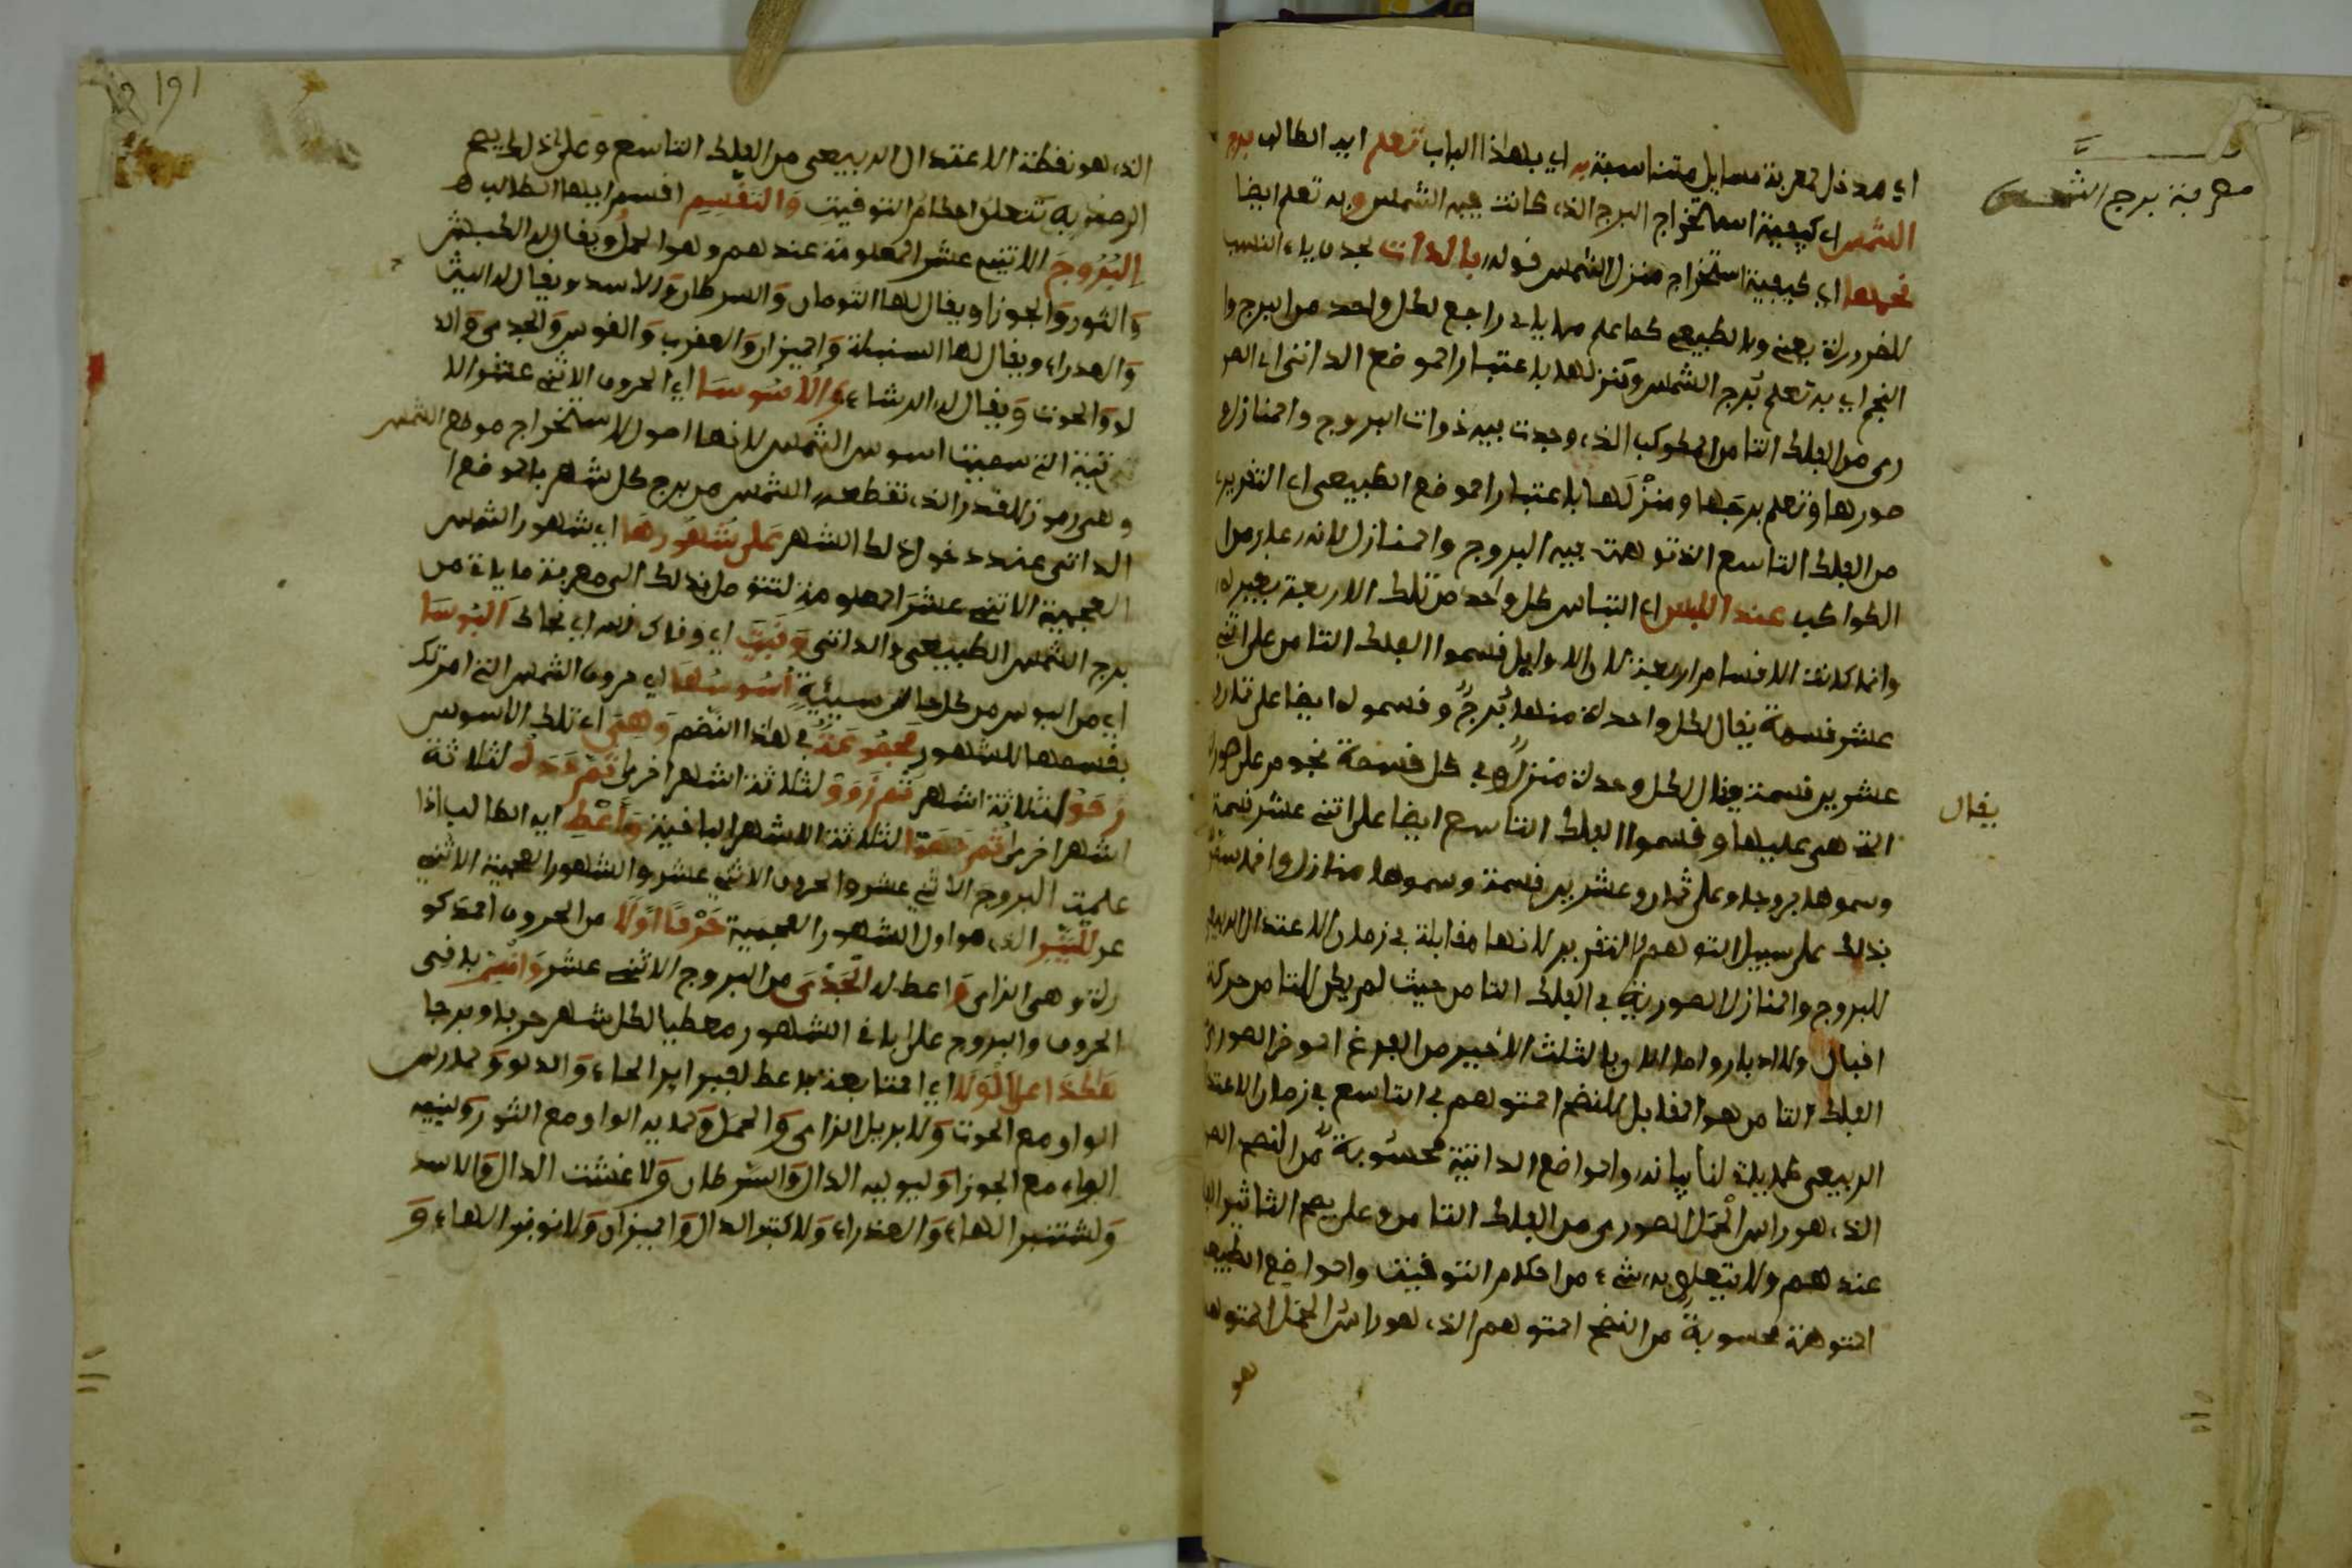 معرفة برج الشمس
اي مدخل لمعرفة مسايل متناسبة به اي بهذا الباب تعلم ايه الطالب برج
الشمس اي كيفية استخراج البرج الذي كانت فيه الشمس وبه تعلم ايضا
نجمها اي كيفية استخراج منزل الشمس قوله بالذات بحذف ياء النسب
للضرورة يعني والطبيعي كما علم مما ياتي راجع لكل واحد من البرج وا
النجم اي به تعلم برج الشمس ومنزلها باعتبار الموضع الذاتي اي الصو
ري من الفلك الثامن المكوكب الذي وجدت فيه ذوات البروج والمنازل
صورها وتعلم برجها ومنزلها باعتبار الموضع الطبيعي اي التقريبي
من الفلك التاسع الذي توهمت فيه البروج والمنازل لانه عار من
الكواكب عند اللبس اي التباس كل واحد من تلك الاربعة بغيره
وانما كانت الاقسام اربعة لان الاوايل قسموا الفلك الثامن على اثني
عشر قسمة يقال لكل واحدة منها برج وقسموه ايضا على ثمان و
عشرين قسمة يقال لكل وحدة منزل وفي كل قسمة نجوم على صور
يقال
التي هي عليها وقسموا الفلك التاسع ايضا على اثني عشر قسمة
وسموها بروجا وعلى ثمان وعشرين قسمة وسموها منازل وانما سموا
بذلك على سبيل التوهم والتقريب لانها مقابلة في زمان الاعتدال الربيعي
للبروج والمنازل الصورية في الفلك الثامن حيث لم يكن للثامن حركة
اقبال ولا ادبار واما الان فالثلث الاخير من الفرغ الموخر الصوري
الفلك الثامن هو المقابل للنضح المتوهم في التاسع في زمان الاعتدا
الربيعي كما ياتي لنا بيانه والمواضع الذاتية محسوبة من النضح الصو
الذي هو راس الحمل الصوري من الفلك الثامن وعلى يصح التاثير
عندهم ولا يتعلق به شيء من احكام التوقيت والمواضع الطبيعية
المتوهمة محسوبة من النضح المتوهم الذي هو راس الحمل المتوهم
هو
191
الذي هو نقطة الاعتدال الربيعي من الفلك التاسع وعلى ذلك يصح
الرصد وبه تتعلق احكام التوقيت والتقسيم اقسم ايها الطالب
البروج الاثني عشر المعلومة عندهم وهو الحمل ويقال له الكبش
والثور والجوزا ويقال لها التومان والسرطان والاسد ويقال له الليث
والعذراء ويقال لها السنبلة والميزان والعقرب والقوس والجدي والد
لو والحوت ويقال له الرشاء والاسوسا اي الحروف الاثني عشر الا
تية التي سميت اسوس الشمس لانها اصول لاستخراج موضع الشمس
وهي رموز للقدر الذي تقطعه الشمس من برج كل شهر بالموضع ا
الذاتي عند دخول ذلك الشهر على شهورها اي شهور الشمس
العجمية الاثني عشر المعلومة لتتوصل بذلك الى معرفة ما ياتي من
برج الشمس الطبيعي والذاتي وقيت اي وقاك الله اي نجاك البوسا
اي من البوس من كل حالة سيئة اسوسها اي حروف الشمس التي امرتك
بقسمها للشهور مجموعة في هذا النضم وهي اي تلك الاسوس
زحو لثلاثة اشهر ثم زوو لثلاثة اشهر اخرى ثم ددد لثلاثة
اشهر اخرى ثم ههوا لثلاثة الاشهر الباقية واعط ايه الطالب اذا
علمت البروج الاثني عشر والحروف الاثني عشر والشهور العجمية الاثني
عشر لينير الذي هو اول الشهور العجمية حرفا اولا من الحروف المذكو
رة وهي الزاي واعط له الجدي من البروج الاثني عشر وامش باقي
الحروف والبروج على باقي الشهور معطيا لكل شهر حرفا وبرجا
هكذا على الولا اي المتابعة فاعط لفبراير الحاء والدلو ولمارس
الواو مع الحوت ولابريل الزاي والحمل ولمايه الواو مع الثور وليونيه
الواو مع الجوزا وليوليه الدال والسرطان ولاغشت الدال والاسد
ولشتنبر الهاء والعذراء ولاكتبر الدال والميزان ولنونبر الهاء و